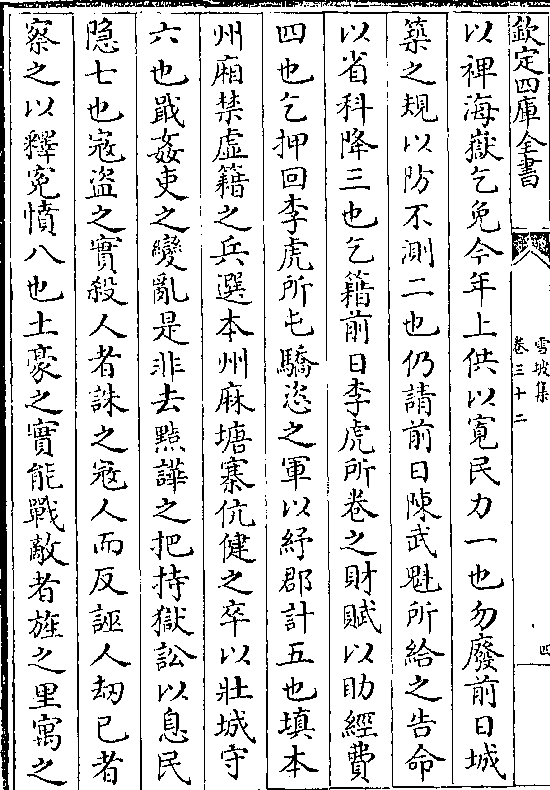 欽定四庫全書
雪坡集
卷三十二
四
以裨海嶽乞免今年上供以寛民力一也勿廢前日城
築之規以防不測二也仍請前日陳武魁所給之告命
以省科降三也乞籍前日李虎所卷之財賦以助經費
四也乞押回李虎所屯驕恣之軍以紓郡計五也填本
州廂禁虛籍之兵選本州麻塘寨伉健之卒以壯城守
六也戢姦吏之變亂是非去㸃譁之把持獄訟以息民
隠七也寇盗之實殺人者誅之寇人而反誣人刼已者
察之以釋寃憤八也土豪之實能戰敵者旌之里寓之